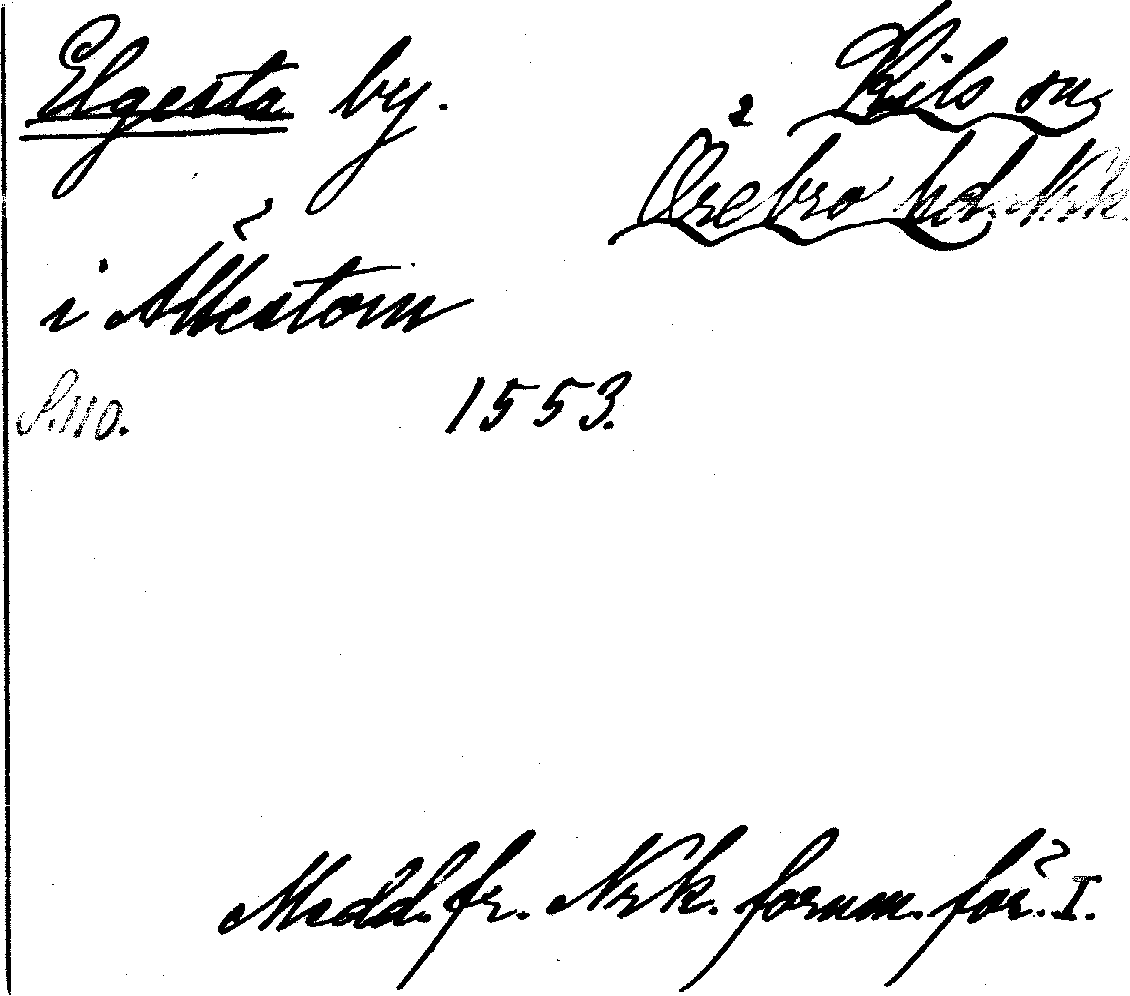 Elgesta by. Kils sn,
Örebro hd. Nrk.
i Ällestom
S. 110. 1553.
Medd. fr. Nrk. fornm. för. I.